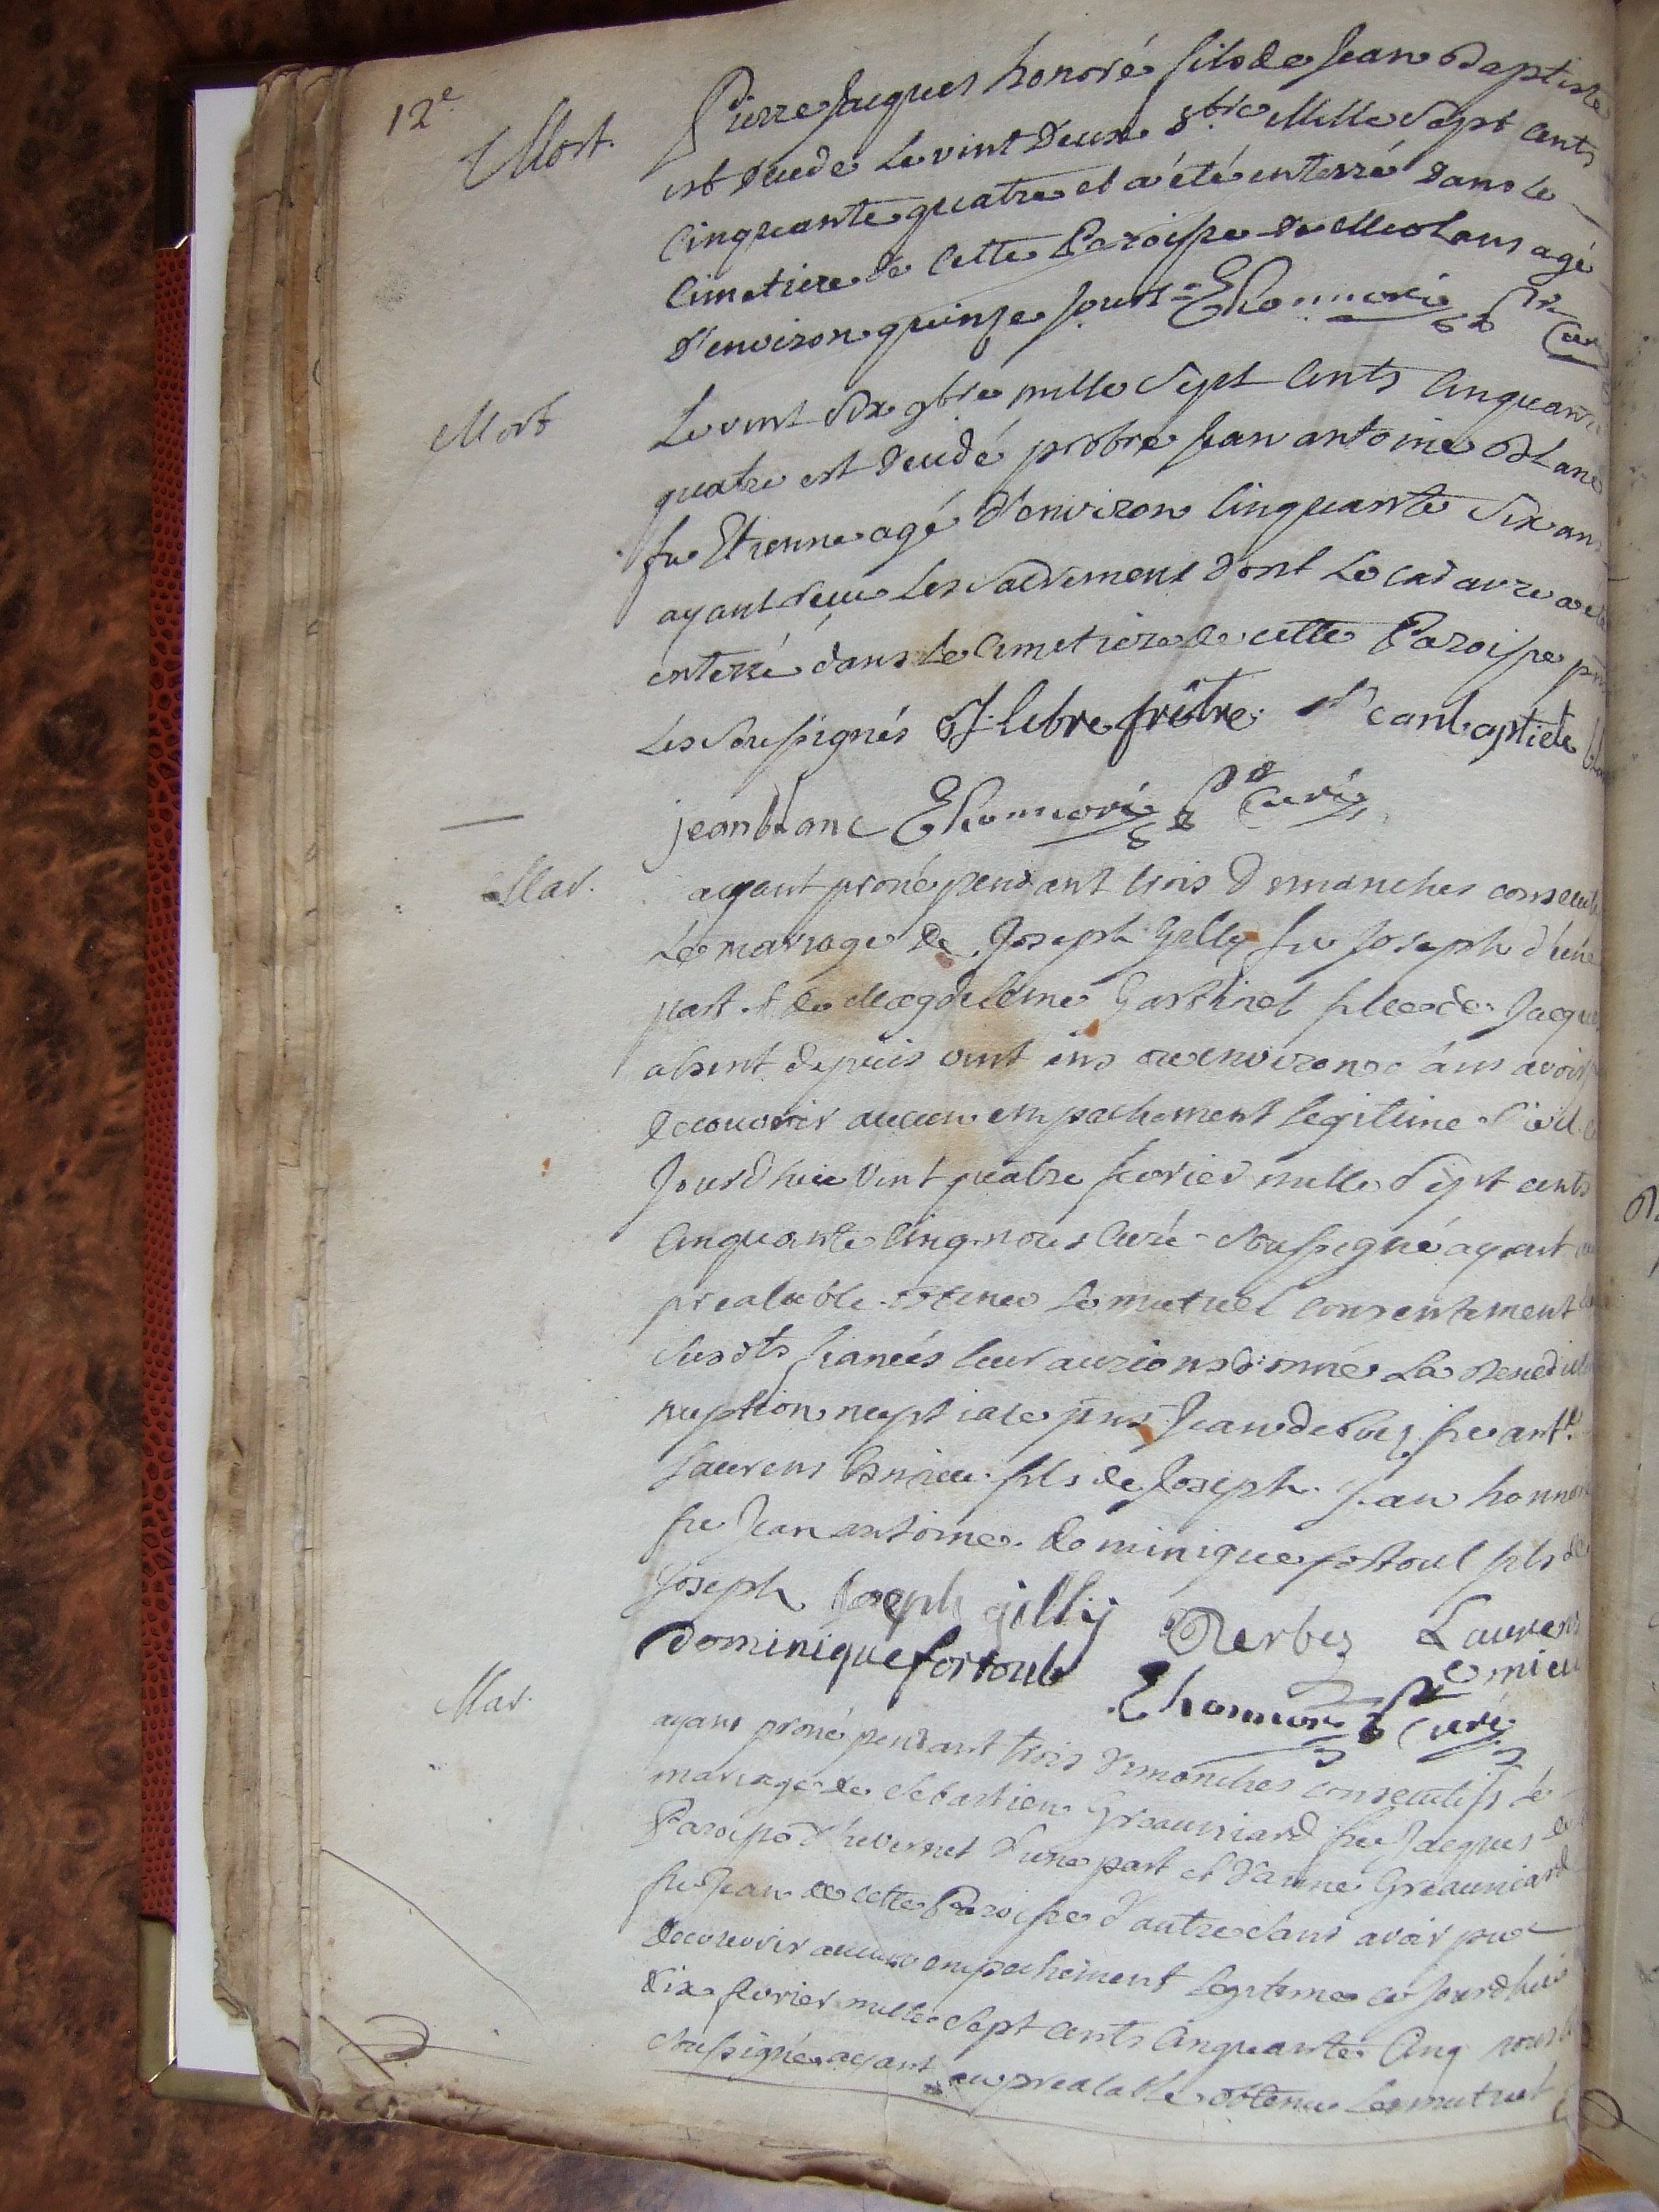 12e
Mort. Pierre Jacques honoré fils de Jean Baptiste
est decedé le vint deux 8bre Mille Sept Cents
Cinquante quatre et a été enterré dans le
Cimetiere de Cette Paroisse de Meolans agé
d'environ quinse jours = E honnoré Pr Curé
Mort Le vint Six 9bre mille Sept Cents Cinquante
quatre est decedé prôbre Jean antoine Blanc
fu Etienne agé d'environ Cinquante Six ans
ayant reçu les Sacrements dont Le cadavre a eté
enterré dans le Cimetiere de cette Paroisse pnt
les Soussignés J: lebre prêtre Jean baptiste
jean blanc E honnoré Pr Curé
Mar. ayant proné pendant trois Dimanches consecutifs
Le mariage de Joseph Gilly fu Joseph d'une
part & de Magdeleine Gastinel fille de Jacques
absent depuis vint ans ou environ sans avoir
decouvrir aucun empachement legitime
Jourdhui vint quatre fevrier mille Sept cents
Cinquante Cinq nous Curé Soussigné ayant
prealable obtenu le mutuel consentement
susdts fiancés leur aurions donné la Benedi
nuption nuptiale pnts Jean derbez fu antne
Laurens Esmieu fils de Joseph. Jean honnoré
fu Jean antoine. dominique fortoul fils de
Joseph Joseph gilly Derbez Laurens
dominique fortoul Esmieu
E honnoré Pr Curé
Mar. ayant proné pendant trois dimanches consecutifs le
mariage de Sebastien Greauniard fu Jacques de
Paroisse d'huvernet d'une part et d'anne Greauniard
fu Jean de cette Paroisse d'autre Sans avoir pu
decouvrir aucun empachement legitime ce jourdhui
dix fevrier mille Sept cents Cinquante Cinq nous
Soussigné ayant au prealable obtenu le mutuel